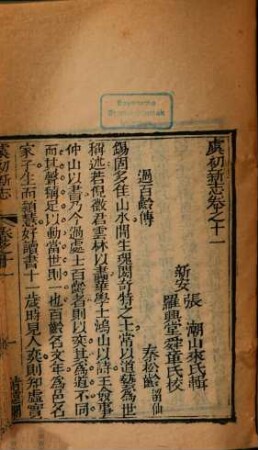 虞初新志卷之十一
新安
張潮山來氏輯
羅興堂舜章氏校
過百齡傳
秦松齡留仙
錫固多佳山水間生瓌閎奇特之士常以道藝為世
稱述若倪徵君雲林以畫華學士鴻山以詩王僉事
仲山以書乃今過處士百齡者則以奕其為道不同
而其聲稱足以動當世則一也百齡名文年為邑名
家子生而穎慧好讀書十一歲時見人奕則知虛實
虞初新志
卷之十一